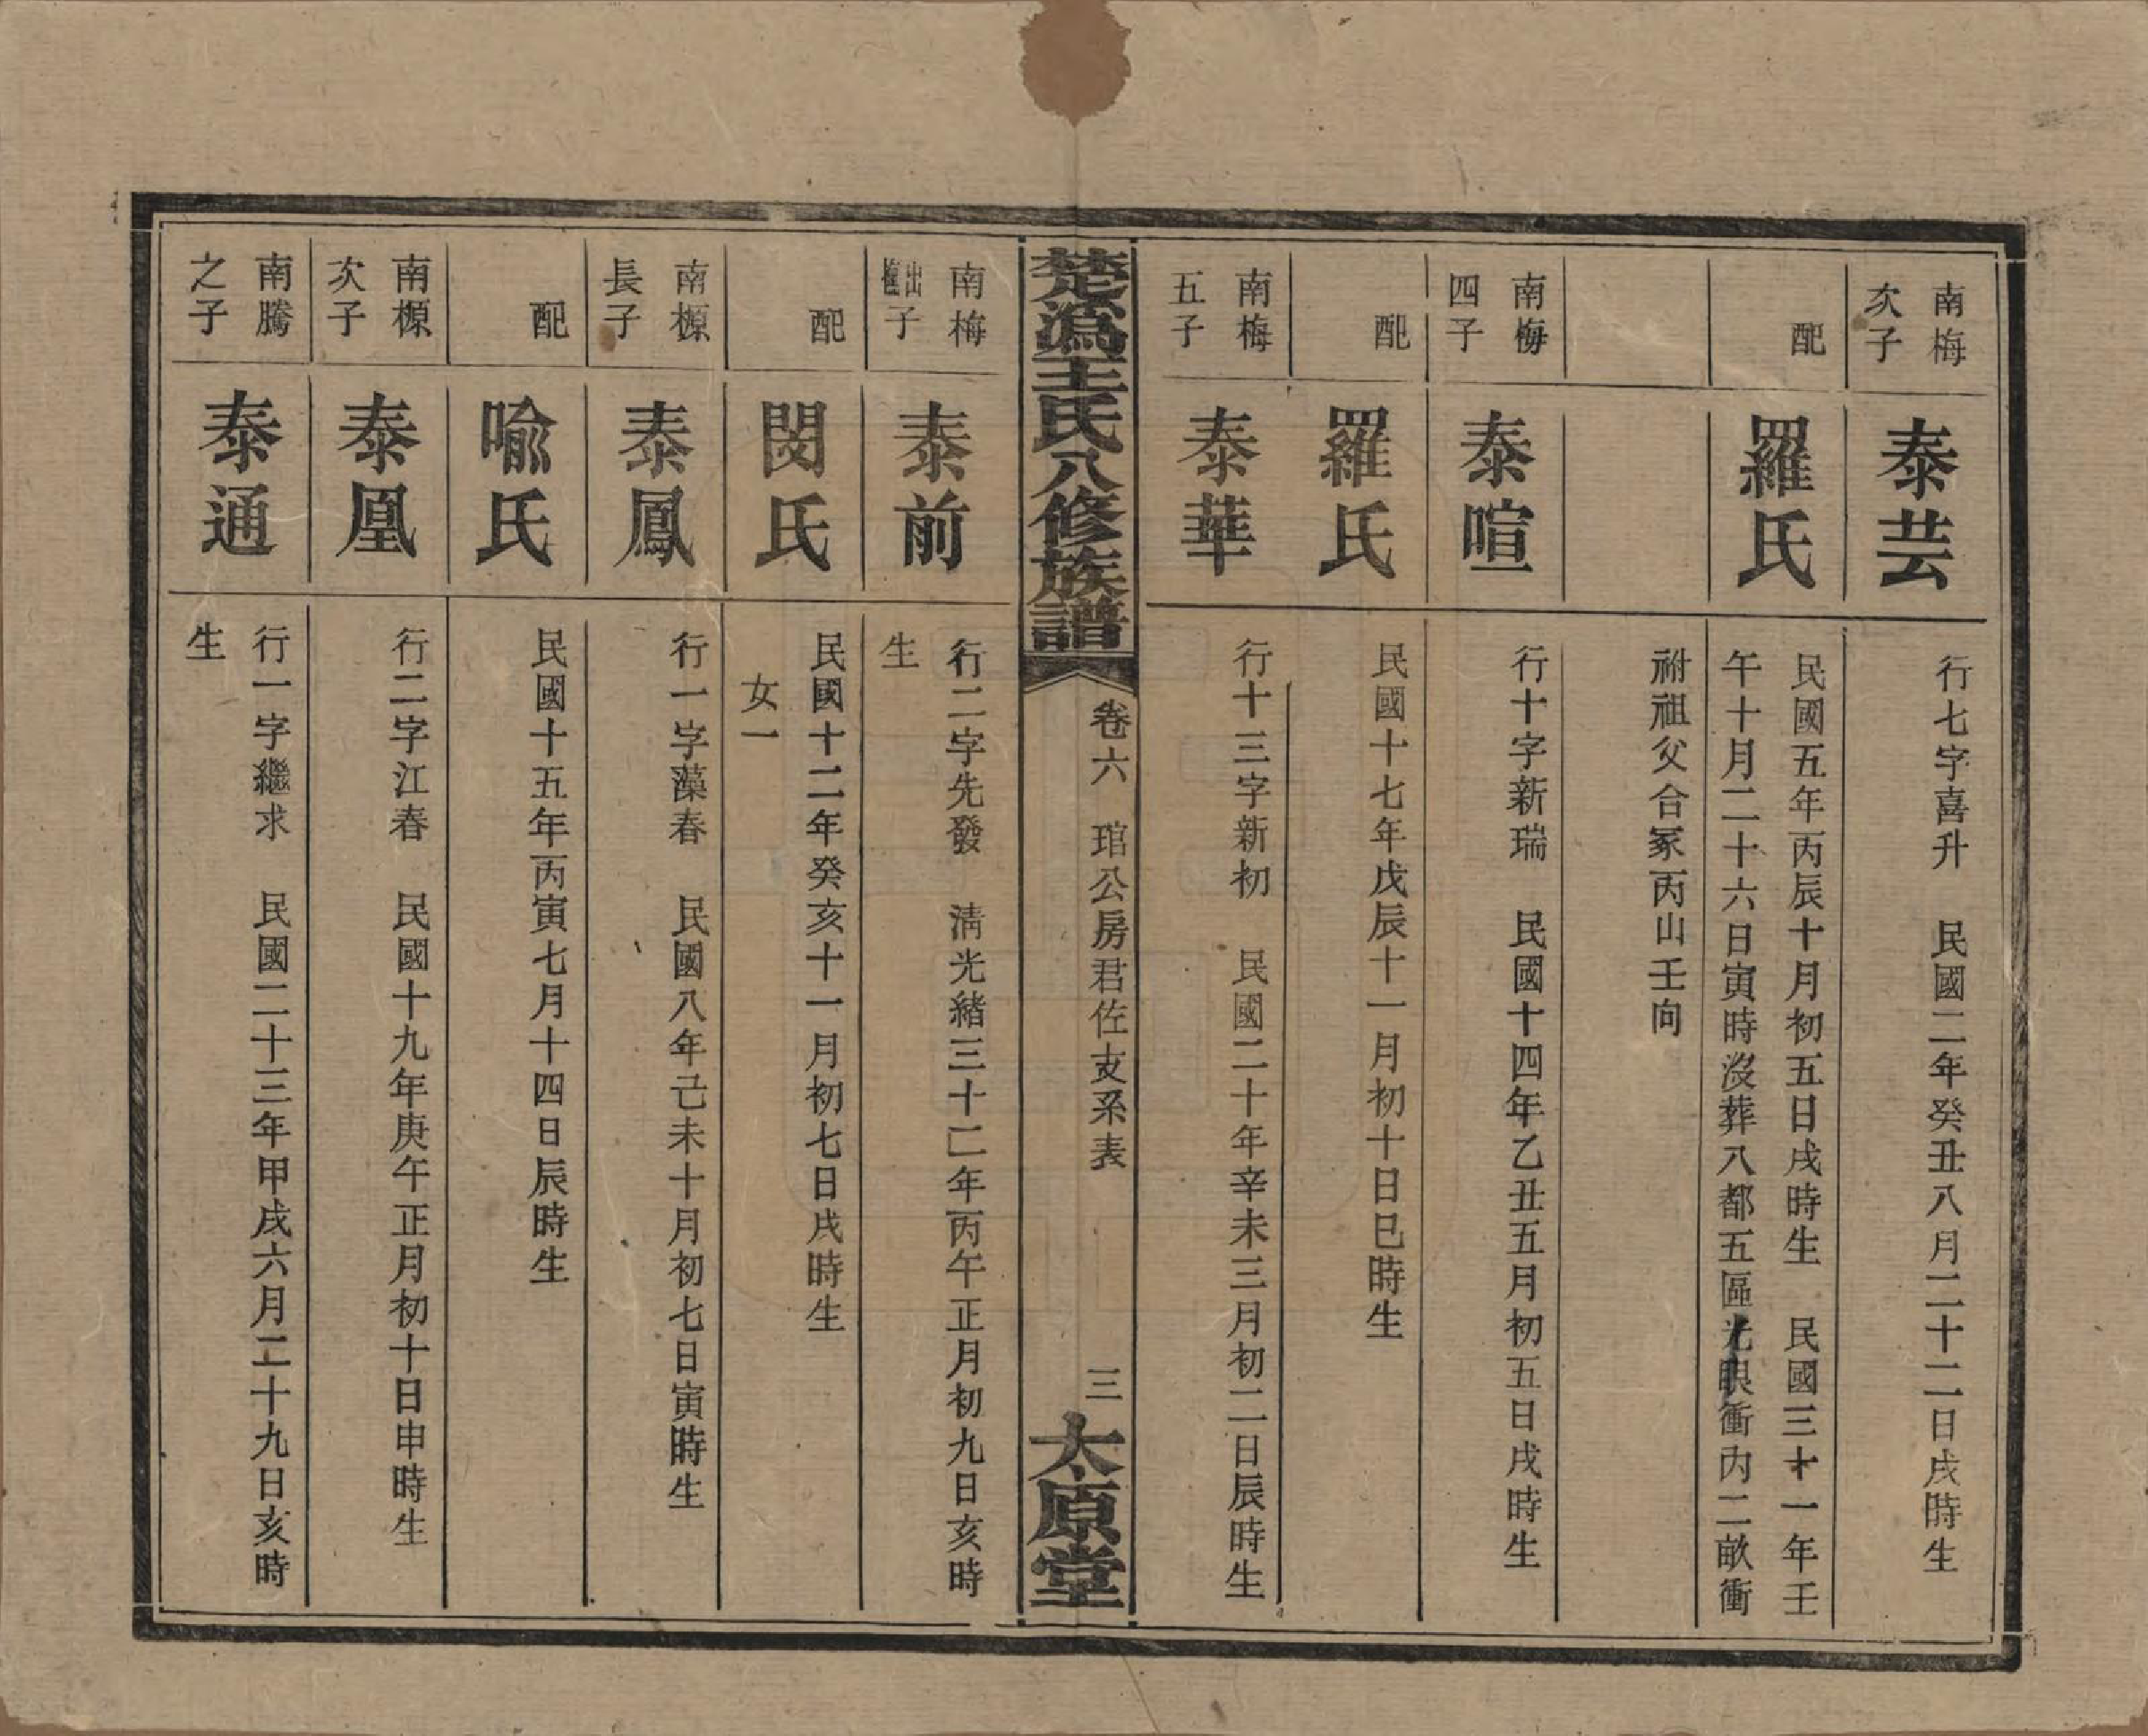 南梅
次子
泰芸
行七字喜升　民國二年癸丑八月二十二日戌時生
配
羅氏
民國五年丙辰十月初五日戌時生　民國三十一年壬
午十月二十六日寅時沒葬八都五區光眼衝內二畝衝
祔祖父合冢丙山壬向
南梅
四子
泰喧
行十字新瑞　民國十四年乙丑五月初五日戌時生
配
羅氏
民國十七年戊辰十一月初十日巳時生
南梅
五子
泰華
行十三字新初　民國二十年辛未三月初二日辰時生
楚溈王氏八修族譜
卷六　琯公房君佐支系表　三
太原堂
南梅
出
子
泰前
行二字先發　淸光緒三十二年丙午正月初九日亥時
生
配
閔氏
民國十二年癸亥十一月初七日戌時生
女一
南榞
長子
泰鳳
行一字藻春　民國八年己未十月初七日寅時生
配
喩氏
民國十五年丙寅七月十四日辰時生
南榞
次子
泰凰
行二字江春　民國十九年庚午正月初十日申時生
南騰
之子
泰通
行一字繼求　民國二十三年甲戌六月二十九日亥時
生